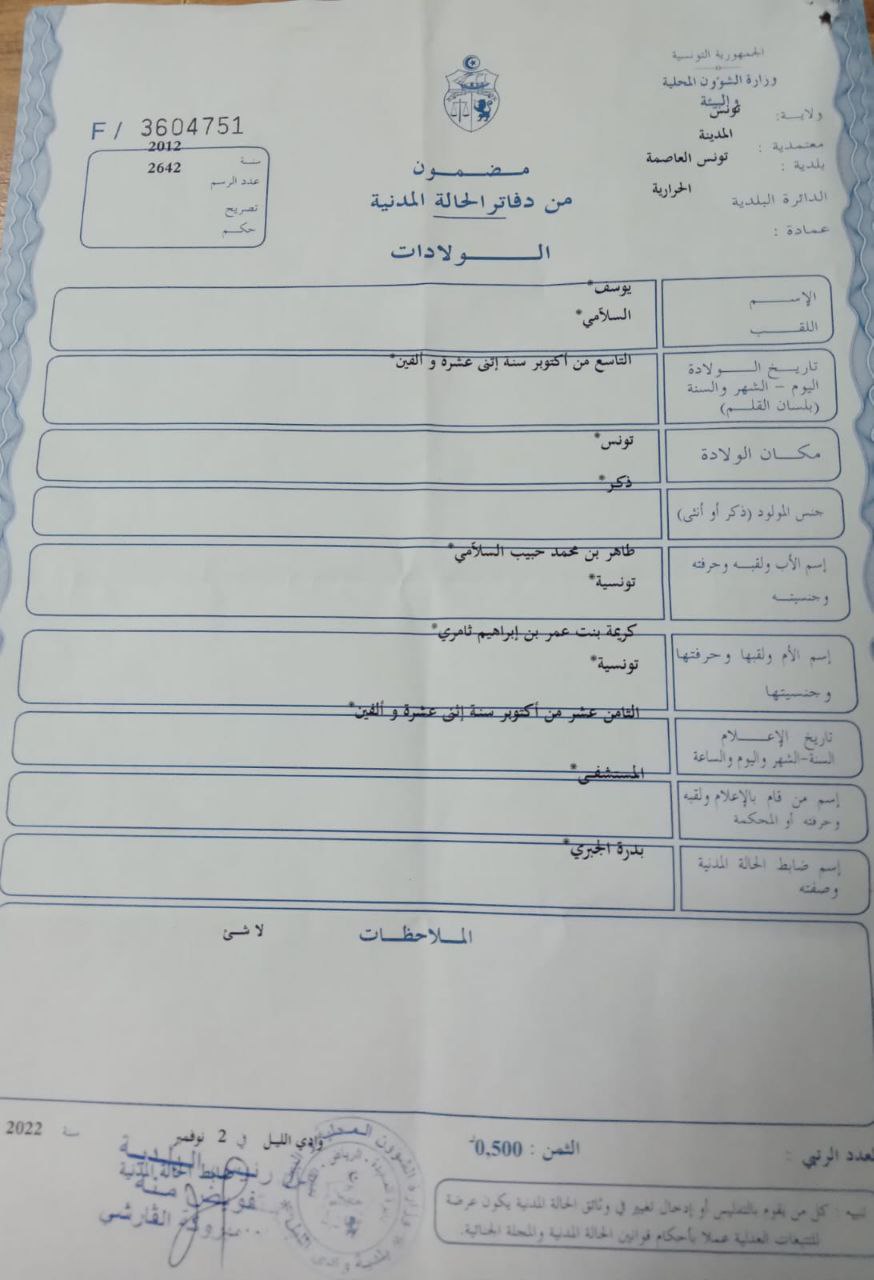 الجمهورية التونسية
وزارة الشؤون المحلية
والبيئة
ولاية: تونس
معتمدية : المدينة
بلدية : تونس العاصمة
الدائرة البلدية الحرارية
عمادة :
F/ 3604751
سنة 2012
عدد الرسم 2642
تصريح
حكم
مضمون
من دفاتر الحالة المدنية
الولادات
الإسم يوسف*
اللقب السلاّمي*
تاريخ الولادة
اليوم - الشهر والسنة
(بلسان القلم)
التاسع من أكتوبر سنة إثنى عشرة و ألفين*
مكان الولادة تونس*
جنس المولود (ذكر أو أنثى) ذكر*
إسم الأب ولقبه وحرفته
وجنسيته
طاهر بن محمد حبيب السلاّمي*
تونسية*
إسم الأم ولقبها وحرفتها
وجنسيتها
كريمة بنت عمر بن إبراهيم ثامري*
تونسية*
تاريخ الإعلام
السنة-الشهر واليوم والساعة
الثامن عشر من أكتوبر سنة إثنى عشرة و ألفين*
إسم من قام بالإعلام ولقبه
وحرفته أو المحكمة
المستشفى*
إسم ضابط الحالة المدنية
وصفته
بدرة الجبري*
الملاحظات
لا شئ
العدد الرتبي :
الثمن : 0,500
وادي الليل في 2 نوفمبر سنة 2022
تنبيه : كل من يقوم بالتدليس أو إدخال تغيير في وثائق الحالة المدنية يكون عرضة
للتتبعات العدلية عملا بأحكام قوانين الحالة المدنية والمجلة الجنائية.
البلدية
ضابط الحالة المدنية
مبروكة القارشي